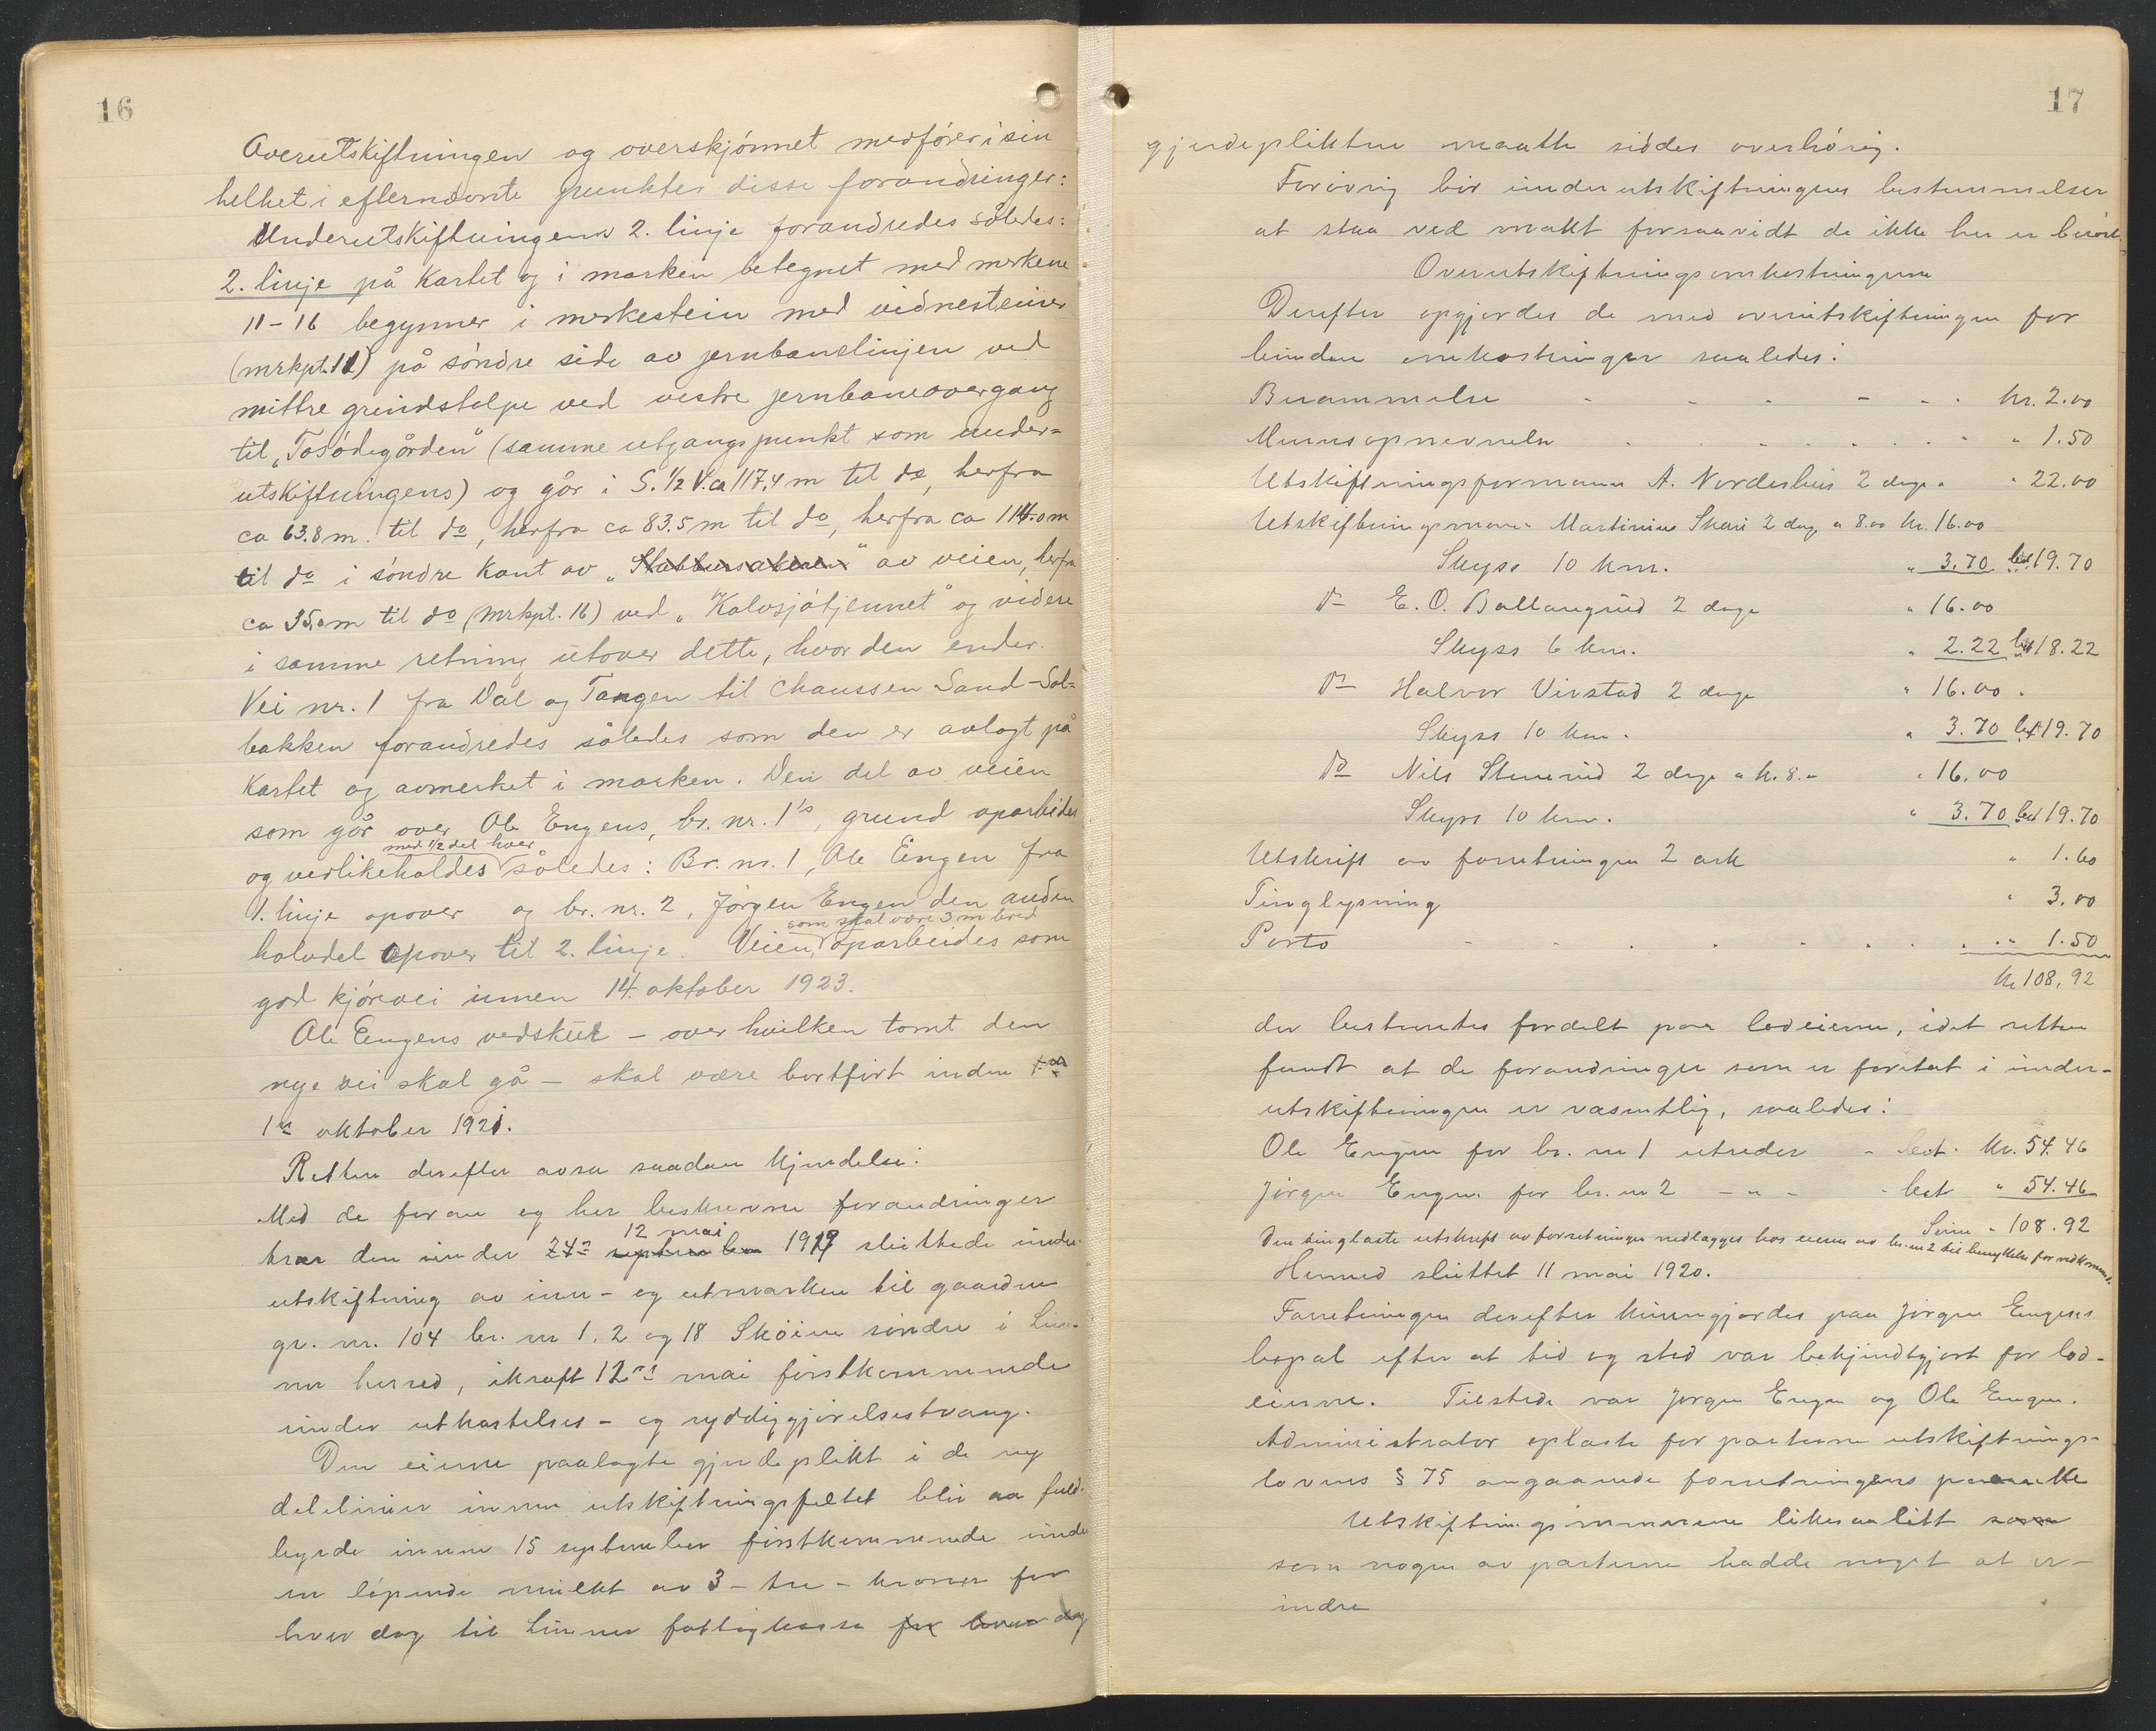 16
Overutskiftningen og overskjønnet medfører i sin
helhet i efternævnte punkter disse forandringer:
Underutskiftningens 2. linje forandredes således:
2. linje på Kartet og i marken betegnet med merkene
11-16 begynner i merkestein med vidnesteiner
(mrkpt. 11) på søndre side av jernbanelinjen ved
mittre grindstolpe ved vestre jernbaneovergang
til „Tosødegården" (samme utgangspunkt som under=
utskiftningens) og går i S. 1/2 V. ca 117,4 m til do, herfra
ca 63.8 m. til do, herfra ca 83.5 m til do, herfra ca 114.0 m
til do i søndre kant av „Stabbursakeren" av veien, herfra
ca 35.0 m til do (mrkpt. 16) ved „Kalvsjøtjennet" og videre
i samme retning utover dette, hvor den ender.
Vei nr. 1 fra Dal og Tangen til Chaussen Sand-Sol=
bakken forandredes således som den er avlagt på
Kartet og avmerket i marken. Den del av veien
som går over Ole Engens, br. nr. 1's, grund oparbeides
med 1/2 del hver
og vedlikeholdes således: Br. nr. 1, Ole Engen fra
1. linje opover og br. nr. 2, Jørgen Engen den anden
som skal være 3 m bred
halvdel opover til 2. linje. Veien oparbeides som
god kjørevei innen 14. oktober 1923.
Ole Engens vedskul - over hvilken tomt den
nye vei skal gå - skal være bortført inden
1ste oktober 1921.
Retten derefter avsa saadan kjendelse:
Med de foran og her beskrevne forandringer
12 mai
træer den under 24de september 1919 sluttede under-
utskiftning av inn- og utmarken til gaarden
gr. nr. 104 br. nr 1, 2 og 18 Skøien søndre i Lun-
ner herred, ikraft 12te mai førstkommende
under utkastelses- og ryddiggjørelsestvang.
Den eierne paalagte gjerdeplikt i de ny
delelinier innen utskiftningsfeltet blir aa fuld-
byrde innen 15 september førstkommende under
en løpende mulkt av 3 - tre - kroner for
hver dag til Lunner fattigkasse for hver dag
17
gjerdeplikten maatte siddes overhørig.
Forøvrig blir underutskiftningens bestemmelser
at staa ved makt forsaavidt de ikke her er berørt
Overutskiftningsomkostningerne
Derefter opgjordes de med overutskiftningen for
bundne omkostninger saaledes:
Berammelse - - - - - - kr. 2.00
Mensopnevnelse . . . . . . . . " 1.50
Utskiftningsformann A. Nordeshus 2 dage " " 22.00
Utskiftningsmann Martinius Skari 2 dag a 8.00 kr. 16.00
Skyss 10 km. " 3.70 bet 19.70
do E. O. Ballangrud 2 dage " 16.00
Skyss 6 km. " 2.22 bet 18.22
do Halvor Vivstad 2 dage " 16.00.
Skyss 10 km. " 3.70 bet 19.70
do Nils Stenerud 2 dage a k. 8.- " 16.00
Skyss 10 km. " 3.70 bet 19.70
Utskrift av forretningen 2 ark " 1.60
Tinglysning " 3.00
Porto - - . . . . . . . " 1.50
kr 108,92
der bestemtes fordelt paa lodeierne, idet retten
fandt at de forandringer som er foretat i under-
utskiftningen er væsentlig, saaledes:
Ole Engen for br. nr 1 utreder - bet. kr. 54.46
Jørgen Engen for br. nr 2 - " - - bet " 54.46
Sum " 108.92
Den tinglæste utskrift av forretningen nedlægges hos eieren av br. nr 2 til benyttelse for vedkommende.
Hermed sluttet 11 mai 1920.
Forretningen derefter kunngjordes paa Jørgen Engens
bopæl efter at tid og sted var bekjendtgjort for lod-
eierne. Tilstede var Jørgen Engen og Ole Engen.
Administrator oplæste for parterne utskiftnings-
lovens § 75 angaaende forretningens paaanke
Utskiftningsmennene likesaalitt som
som nogen av parterne hadde noget at er-
indre